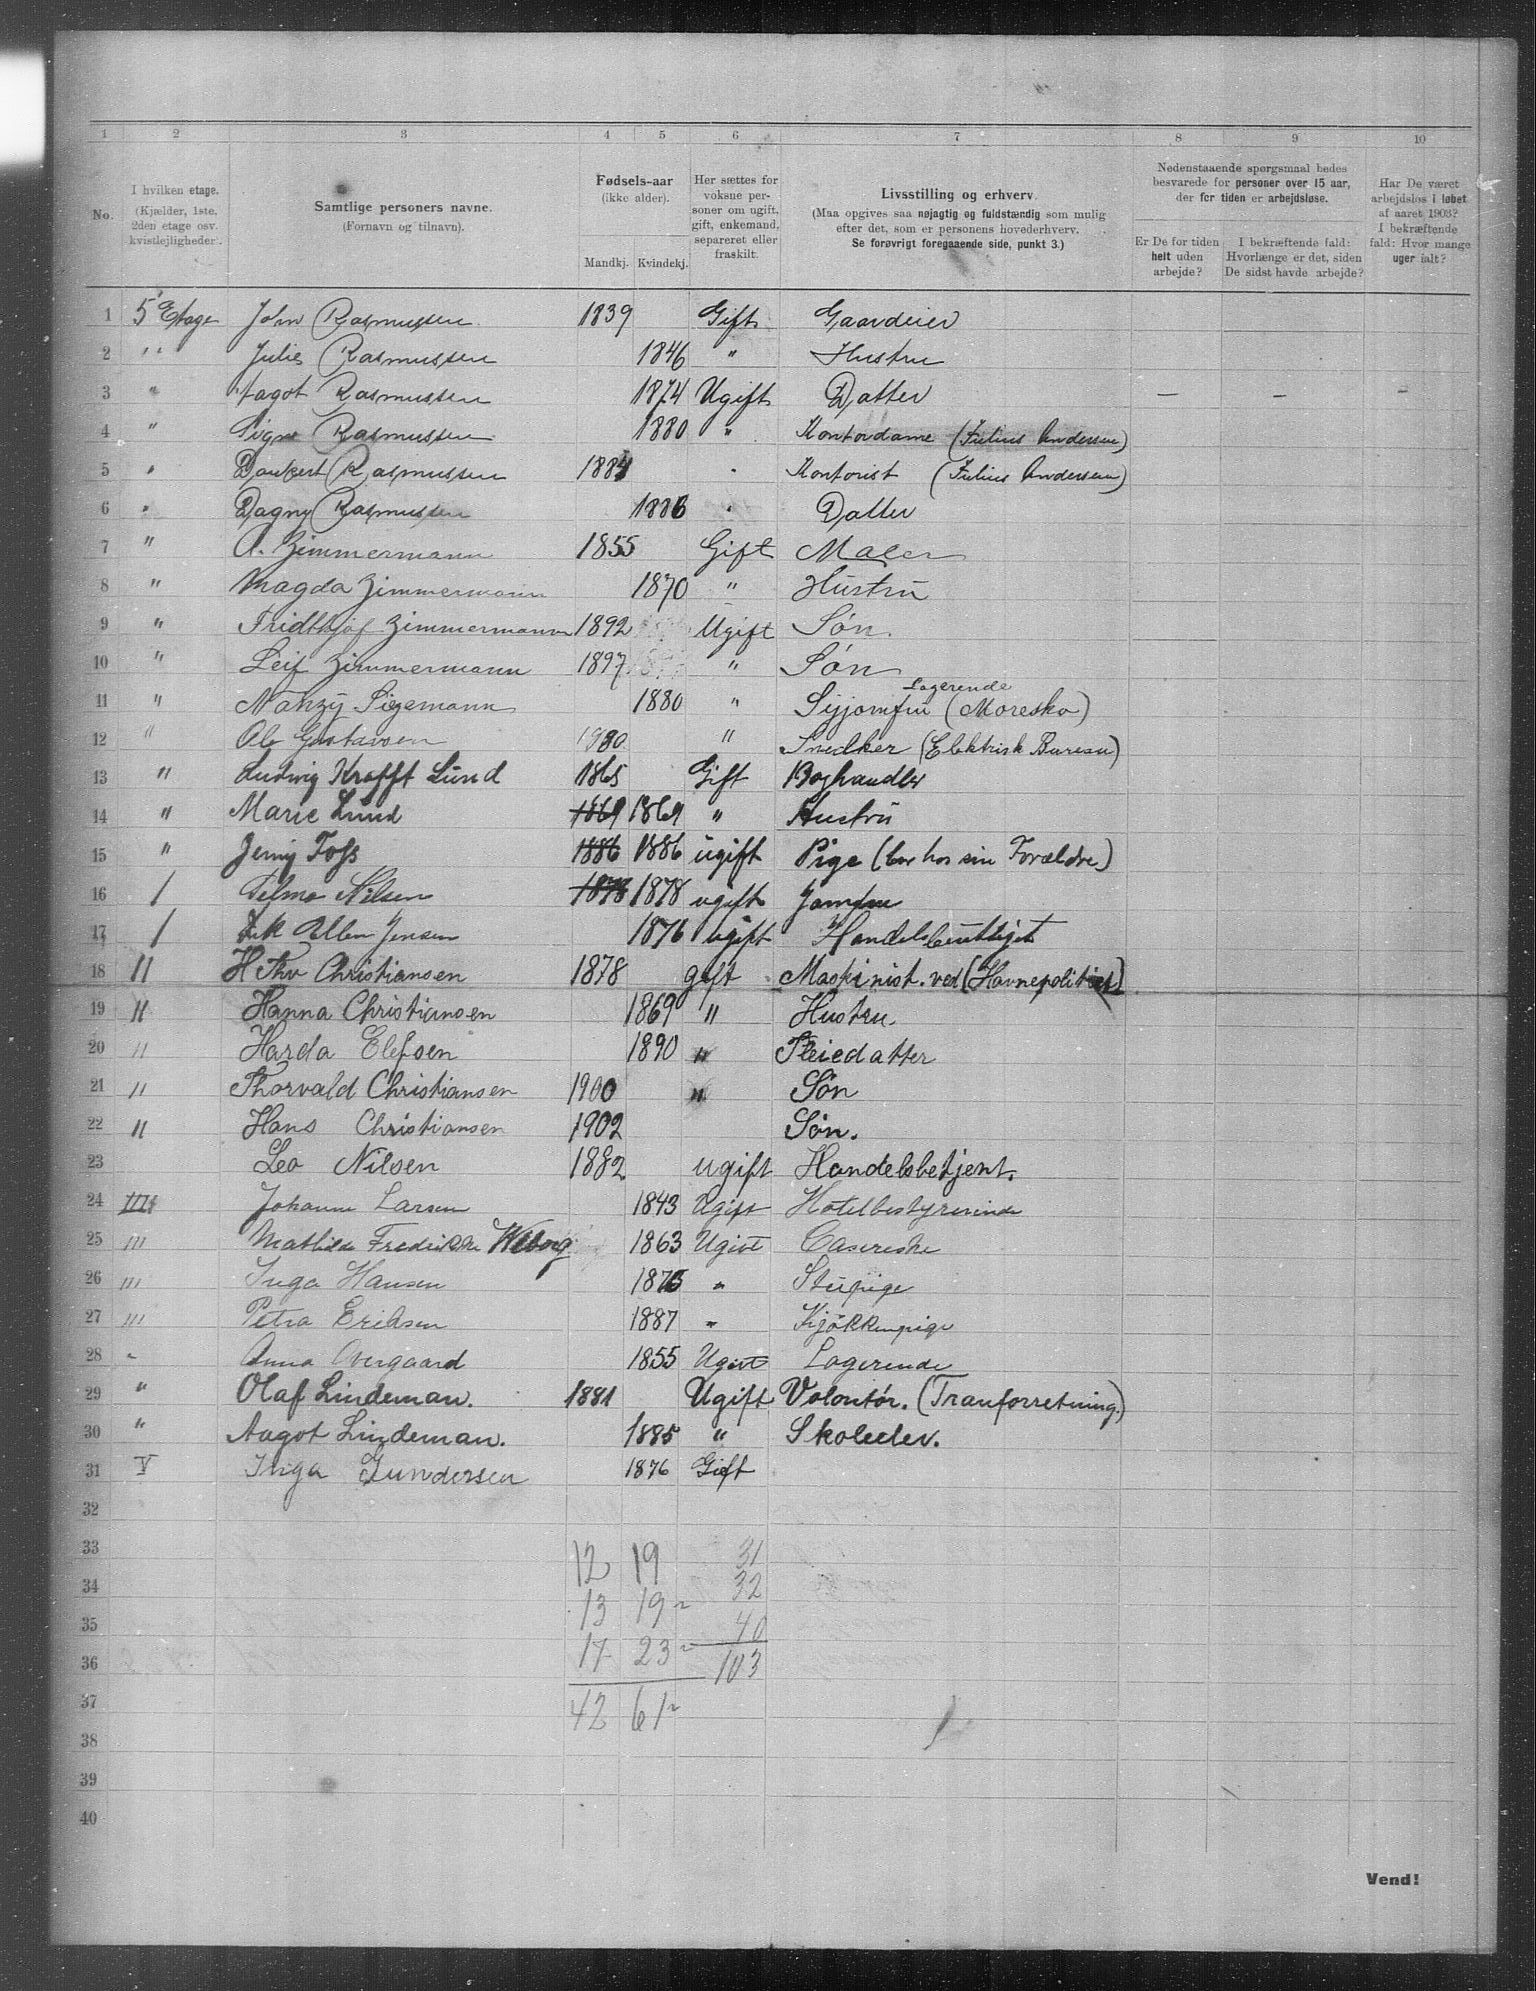 1 2 3 4 5 6 7 8 9 10
No. I hvilken etage. (Kjælder, 1ste, 2den etage osv. kvistlejligheder). Samtlige personers navne. (Fornavn og tilnavn). Fødsels-aar (ikke alder). Mandkj. Kvindekj. Her sættes for voksne personer om ugift, gift, enkemand, separeret eller fraskilt. Livsstilling og erhverv. (Maa opgives saa nøjagtig og fuldstændig som mulig efter det, som er personens hovederhverv. Se forøvrigt foregaaende side, punkt 3.) Nedenstaaende spørgsmaal bedes besvarede for personer over 15 aar, der for tiden er arbejdsløse. Er De for tiden helt uden arbejde? I bekræftende fald: Hvorlænge er det, siden De sidst havde arbejde? Har De været arbejdsløs i løbet af aaret 1903? I bekræftende fald: Hvor mange uger ialt?
1 5 Etage John Rasmussen 1839 Gift Gaardeier
2 " Julie Rasmussen 1846 " Hustru
3 " Aagot Rasmussen 1874 Ugift Datter — — —
4 " Signe Rasmussen 1880 " Kontordame (Julius Andersen)
5 " Rasmussen 1884 " Kontorist (Julius Andersen)
6 " Dagny Rasmussen 1886 " Datter
7 " A. Zimmermann 1855 Gift Maler
8 " Magda Zimmermann 1870 " Hustru
9 " Fridthjof Zimmermann 1892 Ugift Søn.
10 " Leif Zimmermann 1897 " Søn
11 " Nanzy Sigemann 1880 " Syjomfru Logerende (Moresko)
12 " Ole Gustavsen 1880 " Snedker (Elektrisk Bureau)
13 " Ludvig Krafft Lund 1865 Gift Boghandler
14 " Marie Lund 1869 1869 " Hustru
15 " Jenny Foss 1886 1886 ugift Pige (bor hos sin Forældre)
16 / Nilsen 1878 1878 ugift Jomfru
17 / Ellen Jensen 1876 ugift
18 " H Thv Christiansen 1878 gift Maskinist. ved (Havnepolitiet)
19 " Hanna Christiansen 1869 " Hustru.
20 " Harda Elefsen 1890 " Pleiedatter
21 " Thorvald Christiansen 1900 " Søn
22 " Hans Christiansen 1902 Søn.
23 Leo Nilsen 1882 ugift Handelsbetjent.
24 Johanne Larsen 1843 Ugift Hotelbestyrerinde
25 III Mathilde Fredrikke Wiborg 1863 Ugivt Casererske
26 III Inga Hansen 1875 " Stupige
27 III Petra Eriksen 1887 " Kjøkkenpige
28 " Anna Overgaard 1855 Ugivt Logerende
29 " Olaf Lindeman. 1881 Ugift Volontør. (Tranforretning.)
30 " Aagot Lindeman. 1885 " Skoleelev.
31 V Inga Gundersen 1876 Gift
32
33 12 19 31
34 13 19 32
35 17 23 40
36 103
37 42 61
38
39
40
Vend!